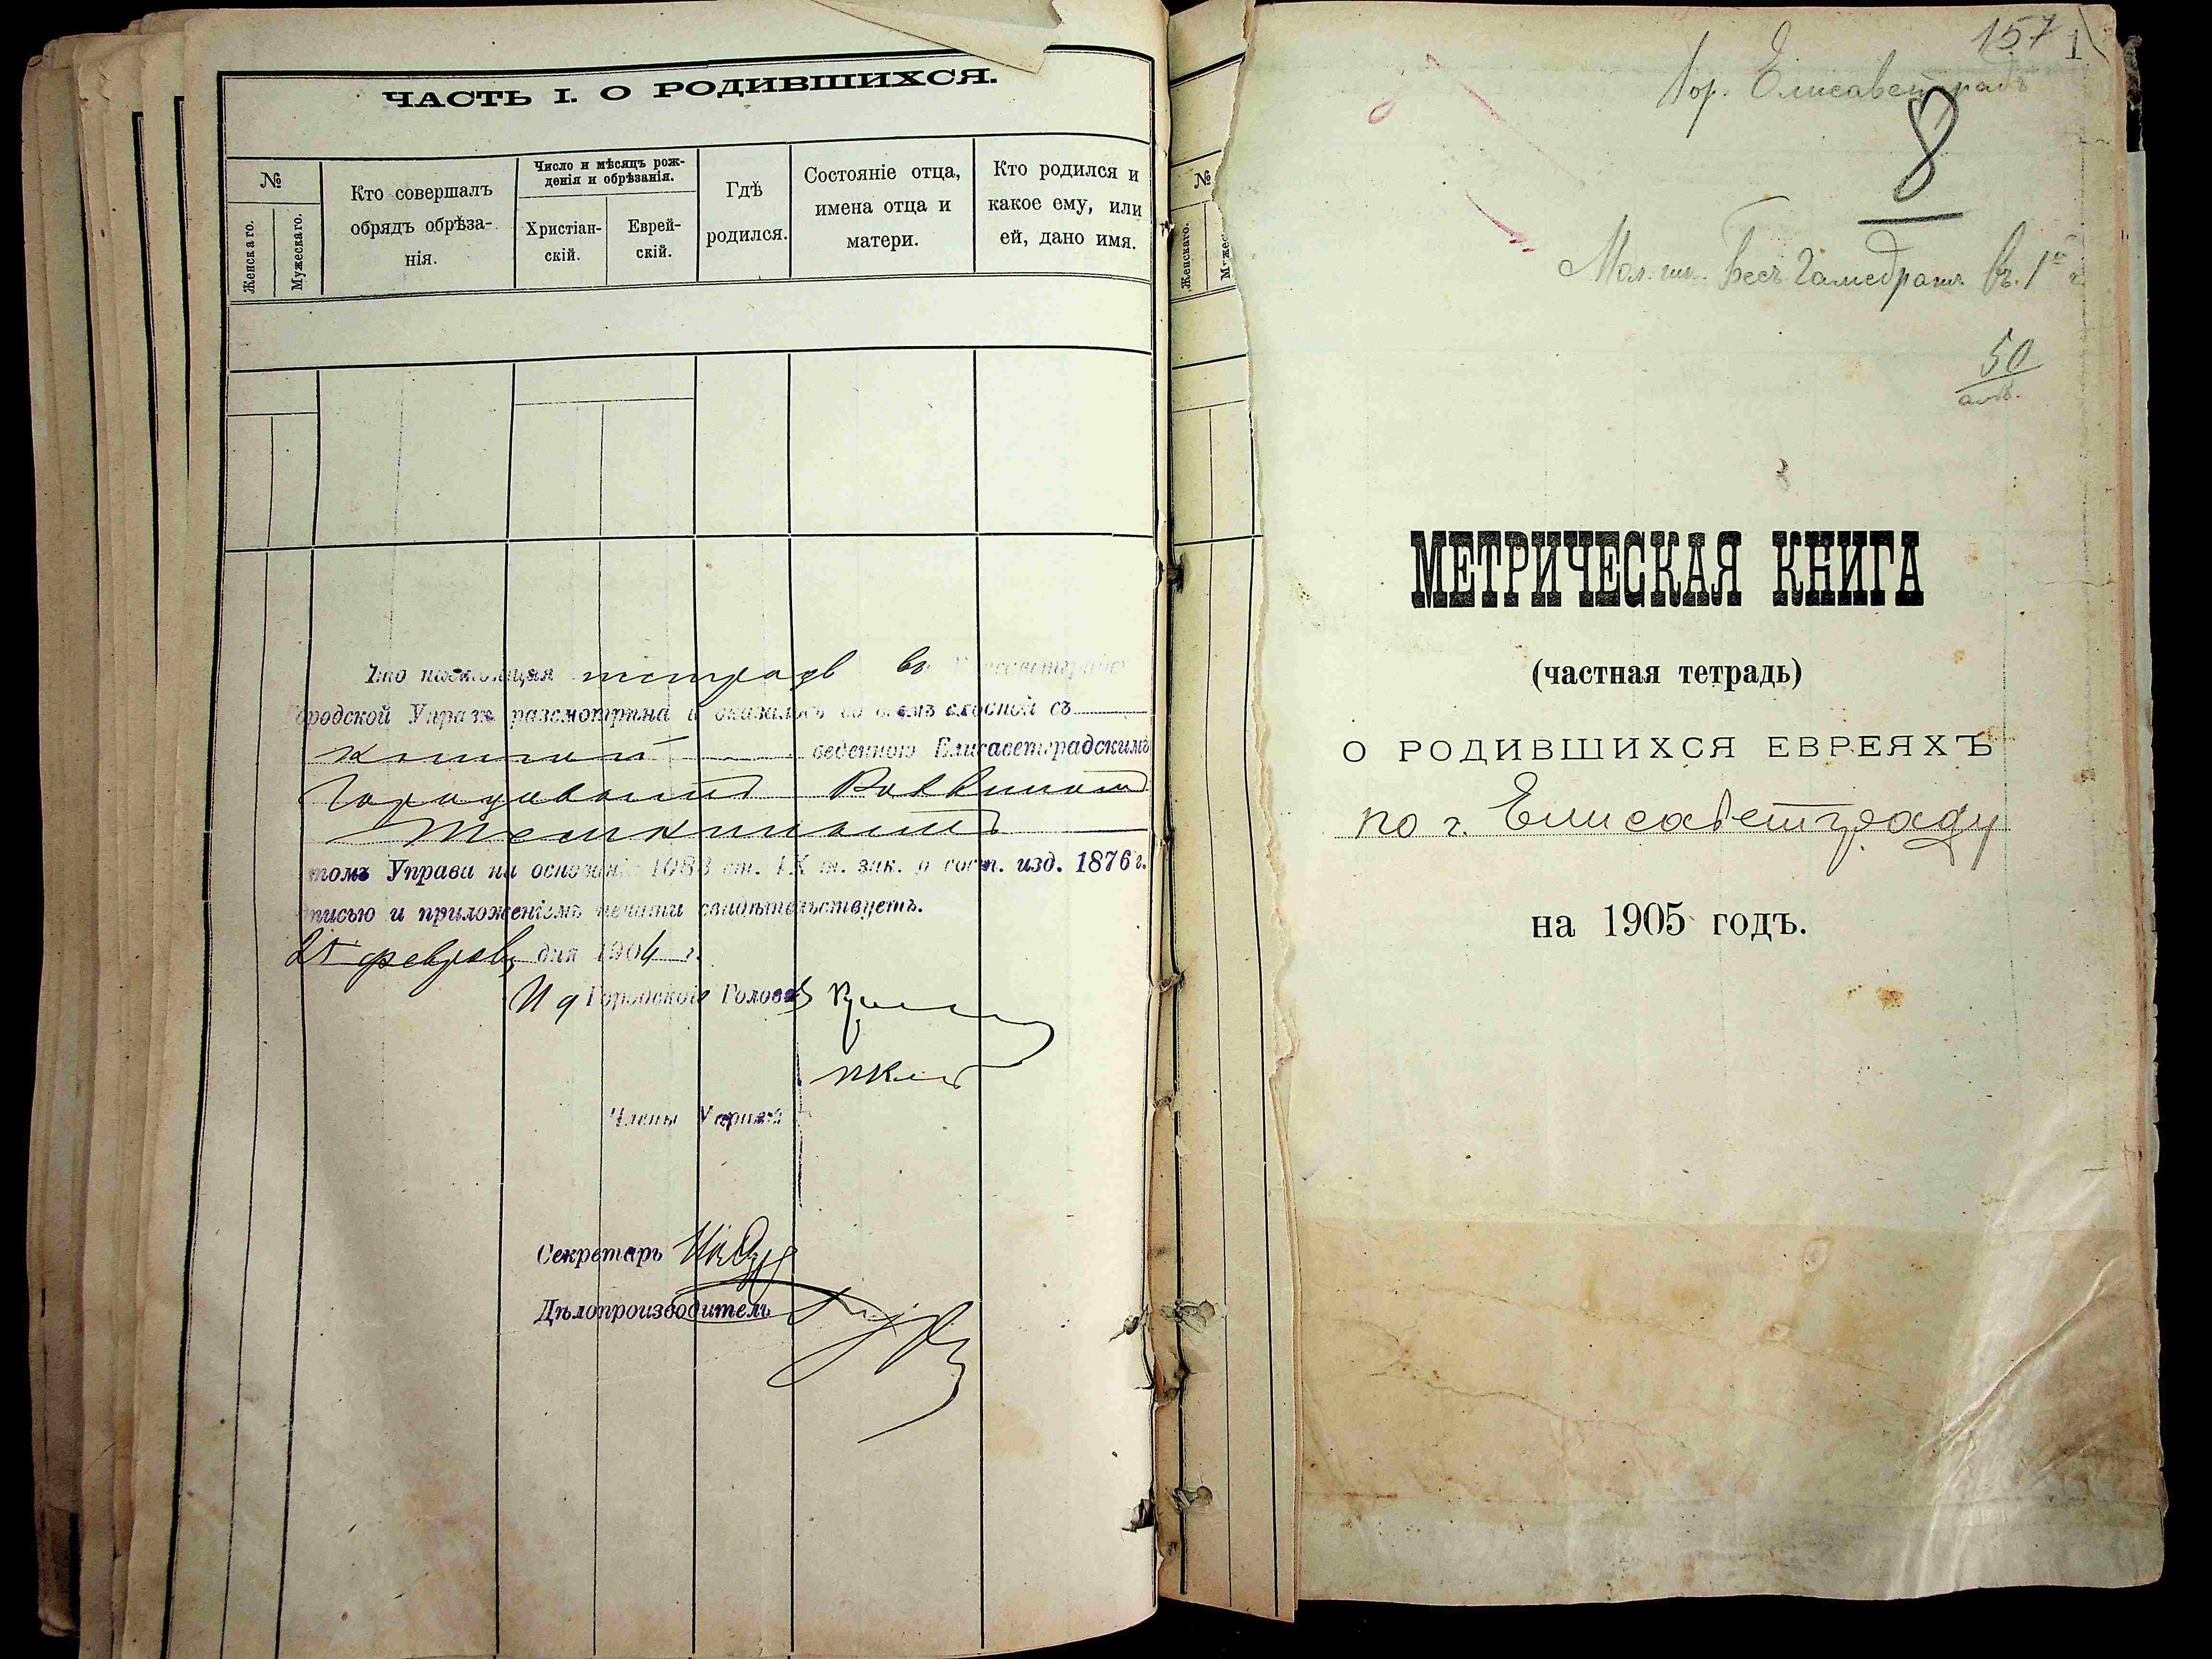 ЧАСТЬ I. О РОДИВШИХСЯ.
№
Женскаго.
Мужескаго.
Кто совершалъ
обрядъ обрѣза-
нія.
Число и мѣсяцъ рож-
денія и обрѣзанія.
Христіан-
скій.
Еврей-
скій.
Гдѣ
родился.
Состояніе отца,
имена отца и
матери.
Кто родился и
какое ему, или
ей, дано имя.
Что настоящая тетрадь въ
Городской Управѣ разсмотрѣна и оказалась во всемъ сходной съ
книгой веденною Елисаветградскимъ
Городовымъ Раввиномъ
томъ Управа на основаніи 1083 ст. IX т. зак. о сост. изд. 1876 г.
писью и приложеніемъ печати свидѣтельствуетъ.
февраля дня 1904 г.
И д Городской Голова
Члены Управы
Секретарь
Дѣлопроизводитель
№
Женскаго.
157
1
Гор. Елисаветградъ
8
Мол. шк. Бесъ Гамедрашъ въ 1й
50
МЕТРИЧЕСКАЯ КНИГА
(частная тетрадь)
О РОДИВШИХСЯ ЕВРЕЯХЪ
по г. Елисаветграду
на 1905 годъ.